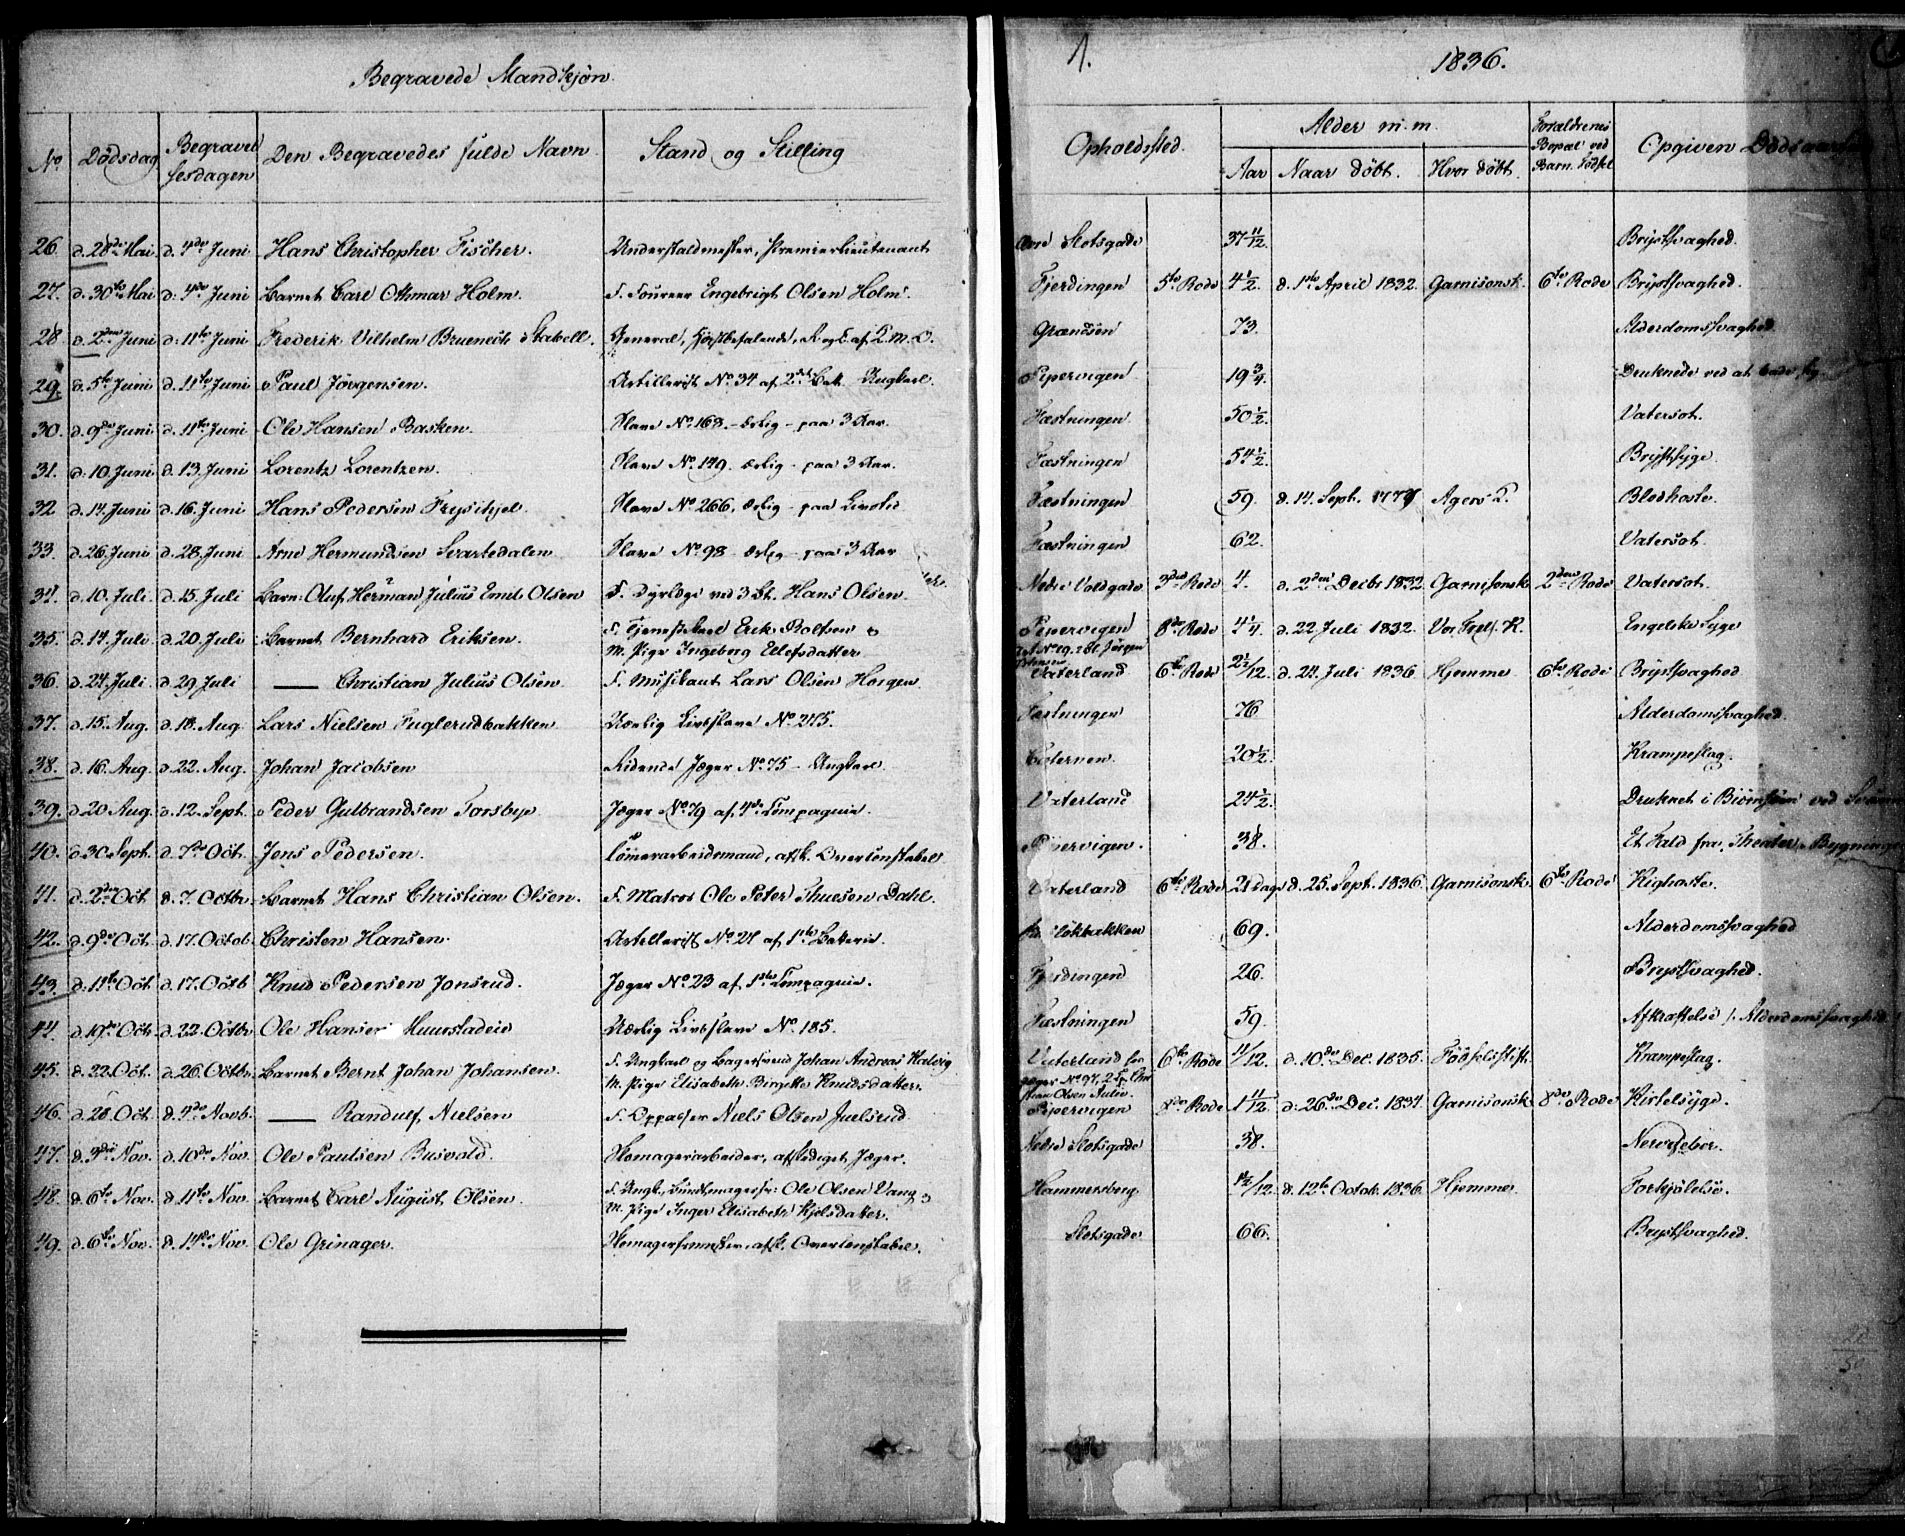 Begravede Mandkjøn.
1.
1836.
No Dødsdag Begravelsesdagen Den Begravedes fulde Navn Stand og Stilling Opholdssted. Alder m.m. Aar Naar døbt. Hvor døbt. Forældrenes Bopæl ved Barn. Fødsel Opgiven
26. d. 28de Mai d. 4de Juni Hans Christopher Fischer. Understaldmester, Premierlieutenant Slotsgade 37 11/12. Brystsvaghed.
27. d. 30te Mai d. 4de Juni Barnet Carl Othmar Holm. F. Foureer Engebrigt Olsen Holm. Fjerdingen 5te Rode 4 1/2. d. 1ste April 1832. Garnisonsk. 6te Rode Brystsvaghed.
28 d. 2den Juni d. 11te Juni Frederik Vilhelm Stabell. General, R og C. af S.M.O. Grændsen 73. Alderdomssvaghed
29. d. 5te Juni d. 11te Juni Paul Jørgensen. Artillerist No 34 af 2det Bat. Ungkarl. Pipervigen 19 3/4. Druknede ved at bade
30. d. 9de Juni d. 11te Juni Ole Hansen Basken. Slave No 163. - ærlig - paa 3 Aar. Fæstningen 50 1/2. Vatersot.
31. d. 10. Juni d. 13. Juni Lorentz Lorentzen. Slave No 149. ærlig - paa 3 Aar. Fæstningen 54 1/2. Brystsyge.
32 d. 14. Juni d. 16. Juni Hans Pedersen Frysihjel. Slave No 266, ærlig - paa Livstid Fæstningen 59. d. 14. Sept. 1777 Agers K. Blodhoste.
33. d. 26. Juni d. 28. Juni Arne Hermundsen Svartedalen Slave No 98 - ærlig - paa 3 Aar Fæstningen 62. Vatersot.
34. d. 10. Juli. d. 15. Juli Barn: Oluf Herman Julius Emil Olsen F. Dyrlæge ved 3 Hans Olsen. Nedre Voldgade 3die Rode 4. d. 2den Decbr 1832 Garnisonsk 2den Rode Vatersot.
35. d. 14. Juli. d. 20. Juli Barnet Bernhard Eriksen. F. Tjenestkarl Erik Rolfsen &
M. Pige Ingeborg Ellefsdatter Pipervigen 8de Rode 4 1/4. d. 22. Juli 1832. Vor Frels. K. Engelske Syge
36 d. 24. Juli d. 29 Juli — Christian Julius Olsen F. Musikant Lars Olsen Horgen. Vaterland 6te Rode 2 1/2/12. d. 24. Juli 1836 Hjemme 6te Rode Brystsvaghed
37. d. 15. Aug. d. 18. Aug. Lars Nielsen Fuglerudbakken Uærlig Livsslave No 275. Fæstningen 76 Alderdomssvaghed.
38. d. 16. Aug. d. 22. Aug. Johan Jacobsen Ridende Jæger No 75 - Ungkarl. 20 1/2. Krampeslag.
39. d. 20 Aug. d. 12. Sept. Peder Gulbrandsen Torsbye Jæger No 79 af 4de Compagnie. Vaterland 24 1/2. Druknet i
40. d. 30 Sept. d. 7de Oct. Jens Pedersen. Tømerarbeidsmand, afsk. Overconstabel Pipervigen. 38. Et Fald fra Theater Bygningen
41. d. 2den Oct. d. 7. Octbr. Barnet Hans Christian Olsen. F. Matros Ole Peter Thuesen Dahl. Vaterland 6te Rode 21 Dage d. 25. Sept. 1836. Garnisonsk. 6te Rode Kighoste.
42. d. 9de Oct. d. 17. Octob. Christen Hansen. Artellerist No 21 af 1ste Batterie. 69. Alderdomssvaghed
43. d. 11te Oct. d. 17. Octb Knud Pedersen Jonsrud. Jæger No 23 af 1ste Compagnie. Fjerdingen 26. Brystsvaghed.
44. d. 19de Oct. d. 22. Octbr Ole Hansen Muurstadeie Uærlig Livsslave No 185. Fæstningen 59. Afkræftelse /: Alderdomssvaghed
45. d. 22. Oct. d. 26. Octbr. Barnet Bernt Johan Johansen. F. Ungkarl og Bagersvend Johan Andreas Halvig
M. Pige Elisabeth Birgitte Knudsdatter. Vaterland 6te Rode 11/12. d. 10de Dec. 1835. Fødselsstift. Krampeslag.
46. d. 28. Oct. d. 4de Novb. — Randulf Nielsen F. Oppasser Niels Olsen Juelsrud. Pipervigen 8de Rode 1 11/12. d. 26de Dec. 1834 Garnisonsk. 8de Rode Kirtelsyge.
47. d. 3die Nov. d. 10de Nov. Ole Paulsen Busvold. Skomagerarbeider, afskediget Jæger. Nedre Slotsgade 38. Nervefeber.
48. d. 6te Nov. d. 11te Nov. Barnet Carl August Olsen. F. Ungk., Bundtmagersv: Ole Olsen Vang &
M. Pige Inger Elisabeth Kjelsdatter. Hammersborg. d. 12te Octob. 1836. Hjemme. Forkjølelse.
49. d. 6te Nov. d. 14de Nov. Ole Grinager. Skomagersvend, afsk. Overconstabel. Slotsgade 66. Brystsvaghed.